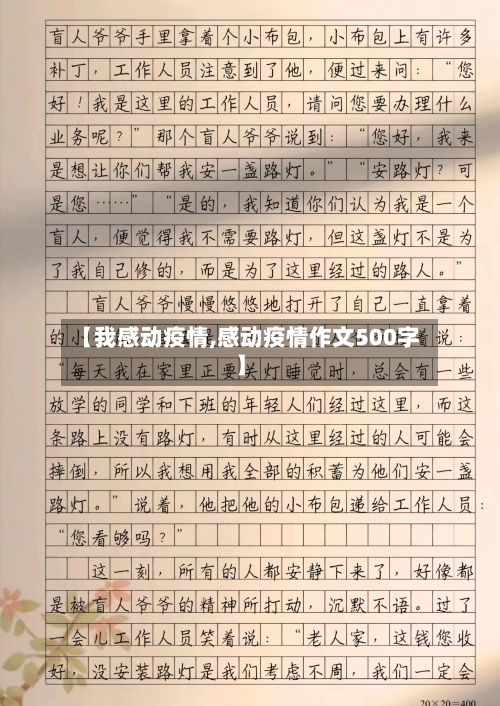 盲人爷爷手里拿着个小布包，小布包上有许多
补丁，工作人员注意到了他，便过来问：“您
好！我是这里的工作人员，请问您要办理什么
业务呢？”那个盲人爷爷说到：“您好，我来
是想让你们帮我安一盏路灯。”“安路灯？可
是您……”“是的，我知道你们认为我是一个
盲人，便觉得我不需要路灯，但这盏灯不是为
了我自己修的，而是为了这里经过的路人。”
盲人爷爷慢慢悠悠地打开了自己一直拿着
的小
着说：
【我感动疫情,感动疫情作文500字
】
“每天我在家里正要关灯睡觉时，总会有一些
放学的同学和下班的年轻人们经过这里，而这
条路上没有路灯，有时从这里经过的人可能会
摔倒，所以我想用我全部的积蓄为他们安一盏
路灯。”说着，他把他的小布包递给工作人员：
“您看够吗？”
这一刻，所有的人都安静下来了，好像都
是被盲人爷爷的精神所打动，沉默不语。过了
一会儿工作人员笑着说：“老人家，这钱您收
好，没安装路灯是我们考虑不周，我们一定会
20×20=400